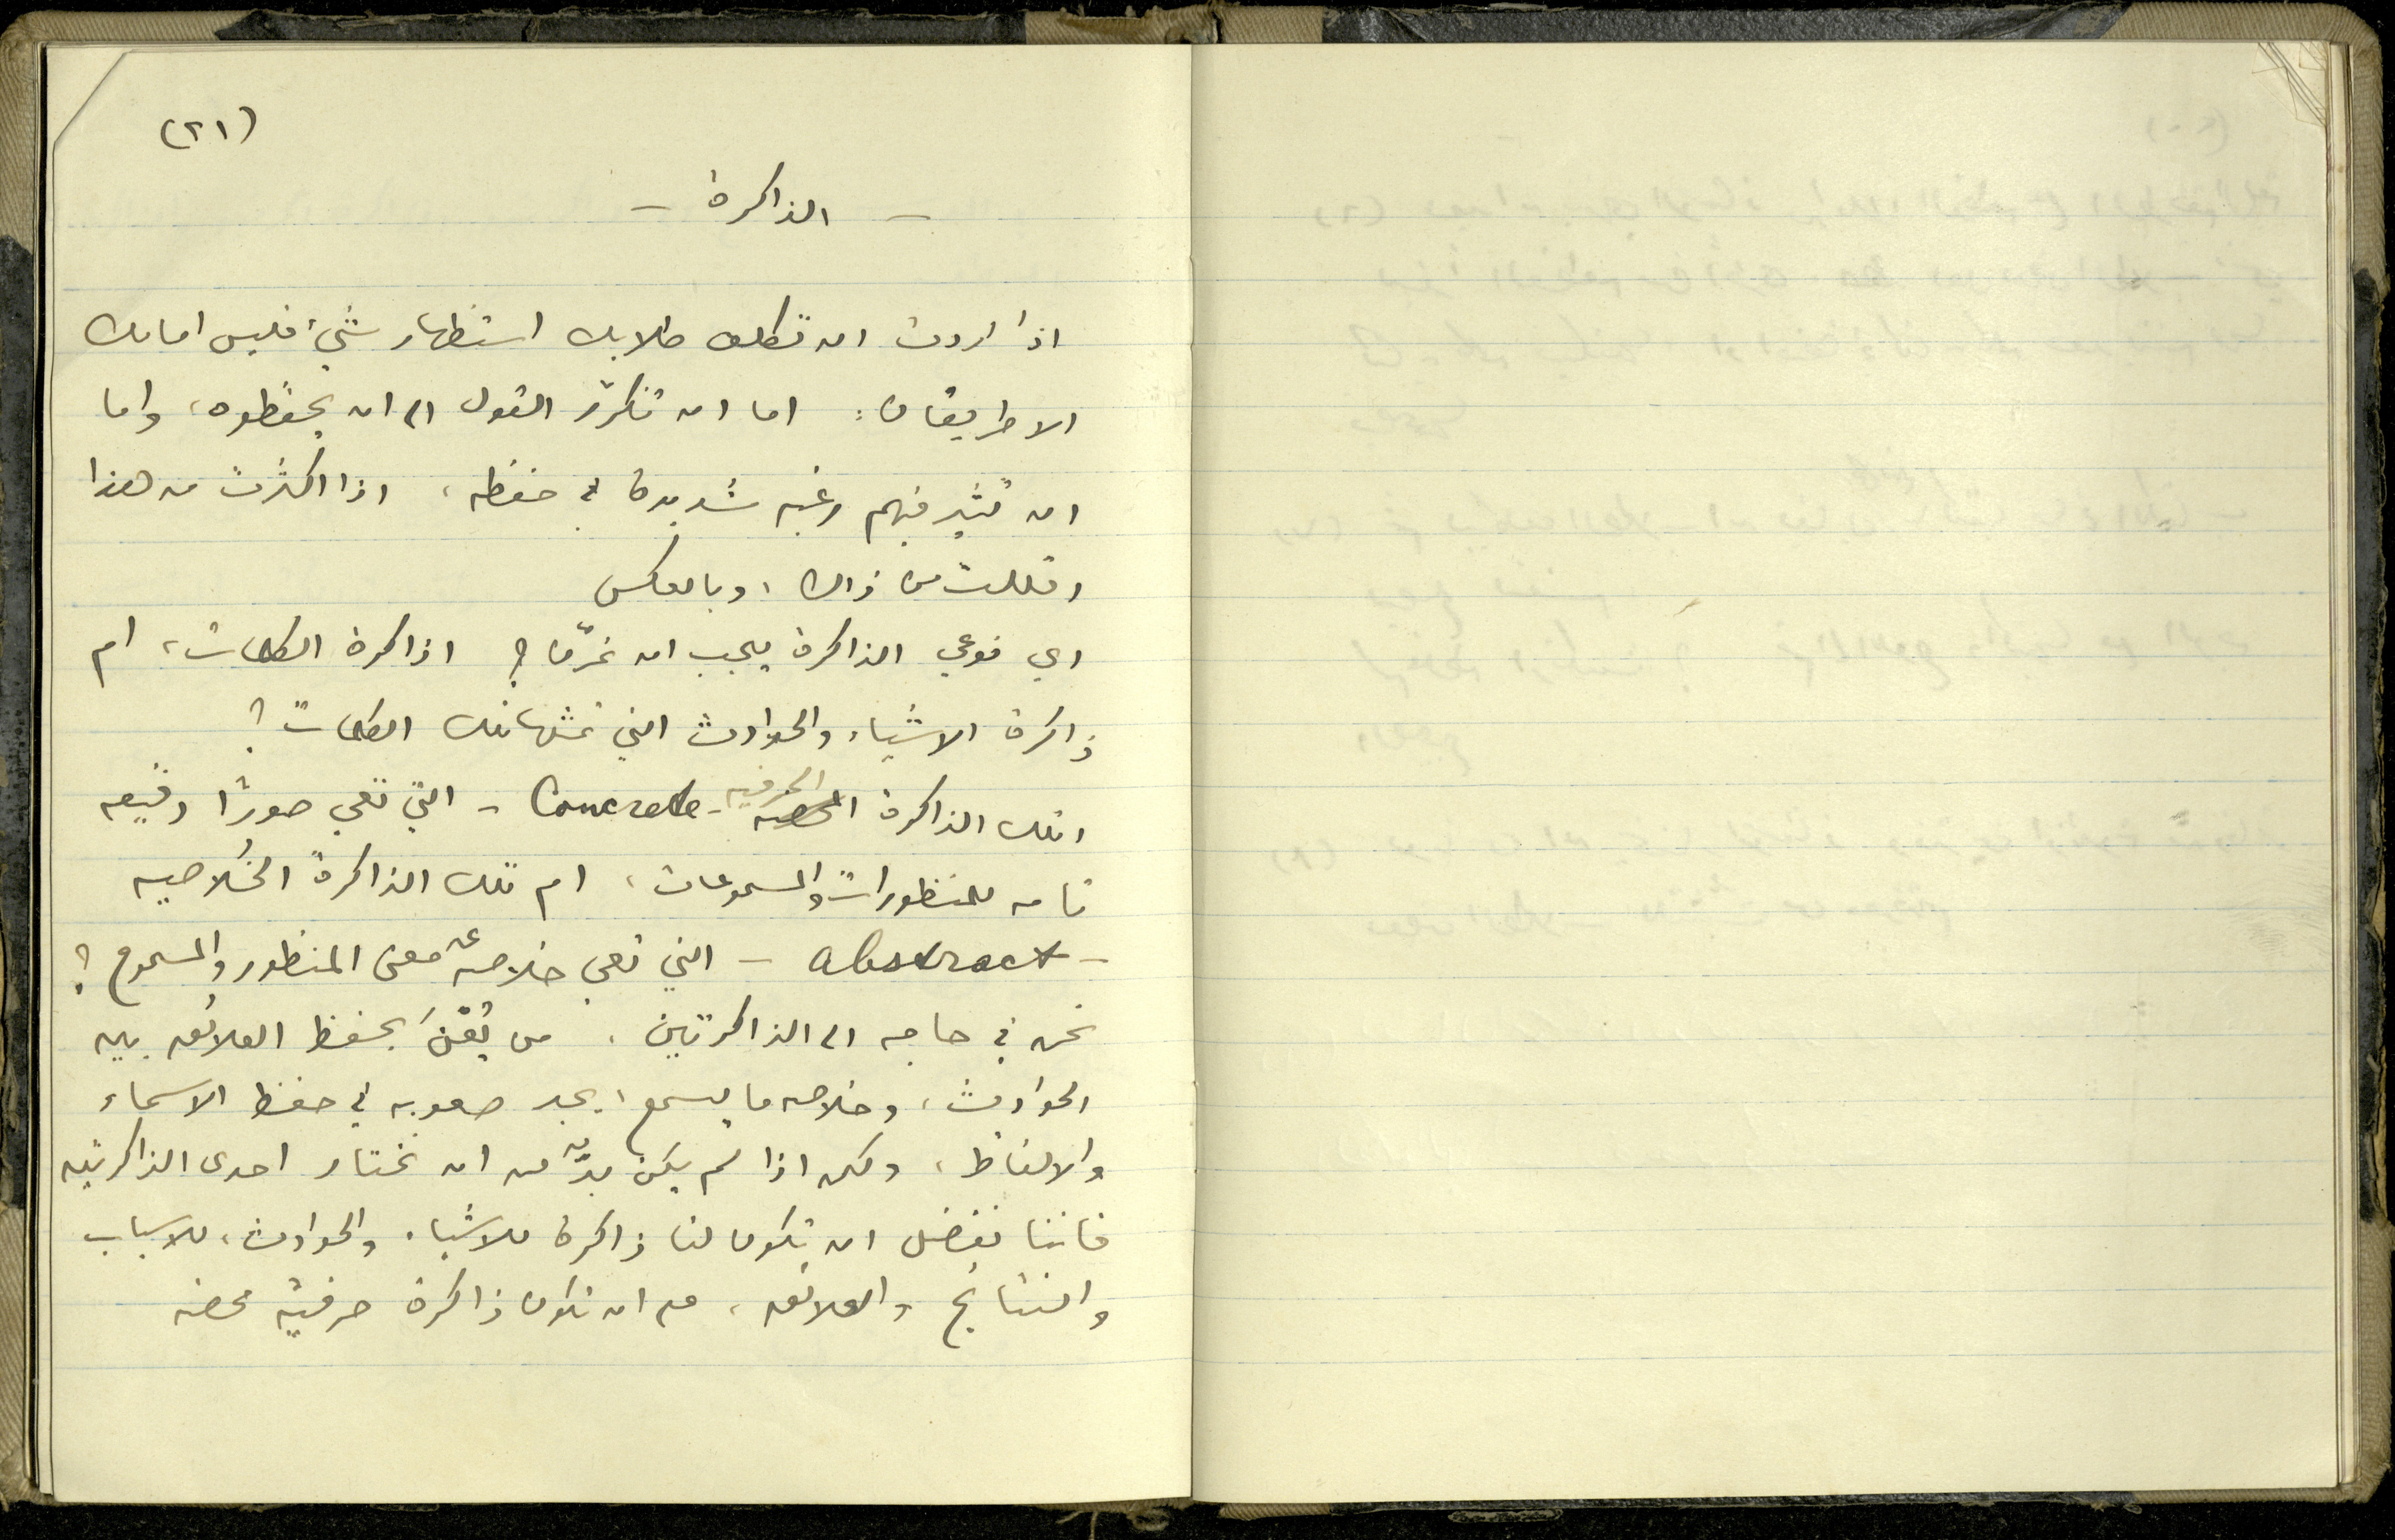 (٢١)
- الذاكرة -
اذا اردت ان تكلف طلابك استظهار شيء فليس امامك
الا طريقان: اما ان تكرّر القول الى ان يحفظوه، واما
ان تثير فيهم رغبه شديدة في حفظه، اذا اكثرت من هذا
اقللت من ذاك، وبالعكس
اي نوعي الذاكرة يجب ان نمرّن؟ اذاكرة الكلمات، ام
ذاكرة الاشياء والحوادث التي تمثلها تلك الكلمات؟
اتلك الذاكرة الحرفيه - Concrete - التي تعي صورًا دقيقه
تامه للمنظورات والمسموعات، ام تلك الذاكرة الخُلاصيه
- abstract - التي تعي خلاصه عن معنى المنظور والمسموع؟
نحن في حاجه الى الذاكرتين. من يُعْنَ بحفظ العلائق بين
الحوادث، وخلاصه ما يسمع، يجد صعوبه في حفظ الاسماء
والالفاظ، ولكن اذا لم يكن بدٌّ من ان نختار احدى الذاكرتين
فاننا نفضل ان تكون لنا ذاكرة للاشياء والحوادث، للاسباب
والنتائج والعلائق، على ان تكون ذاكرة حرفيّه محضه